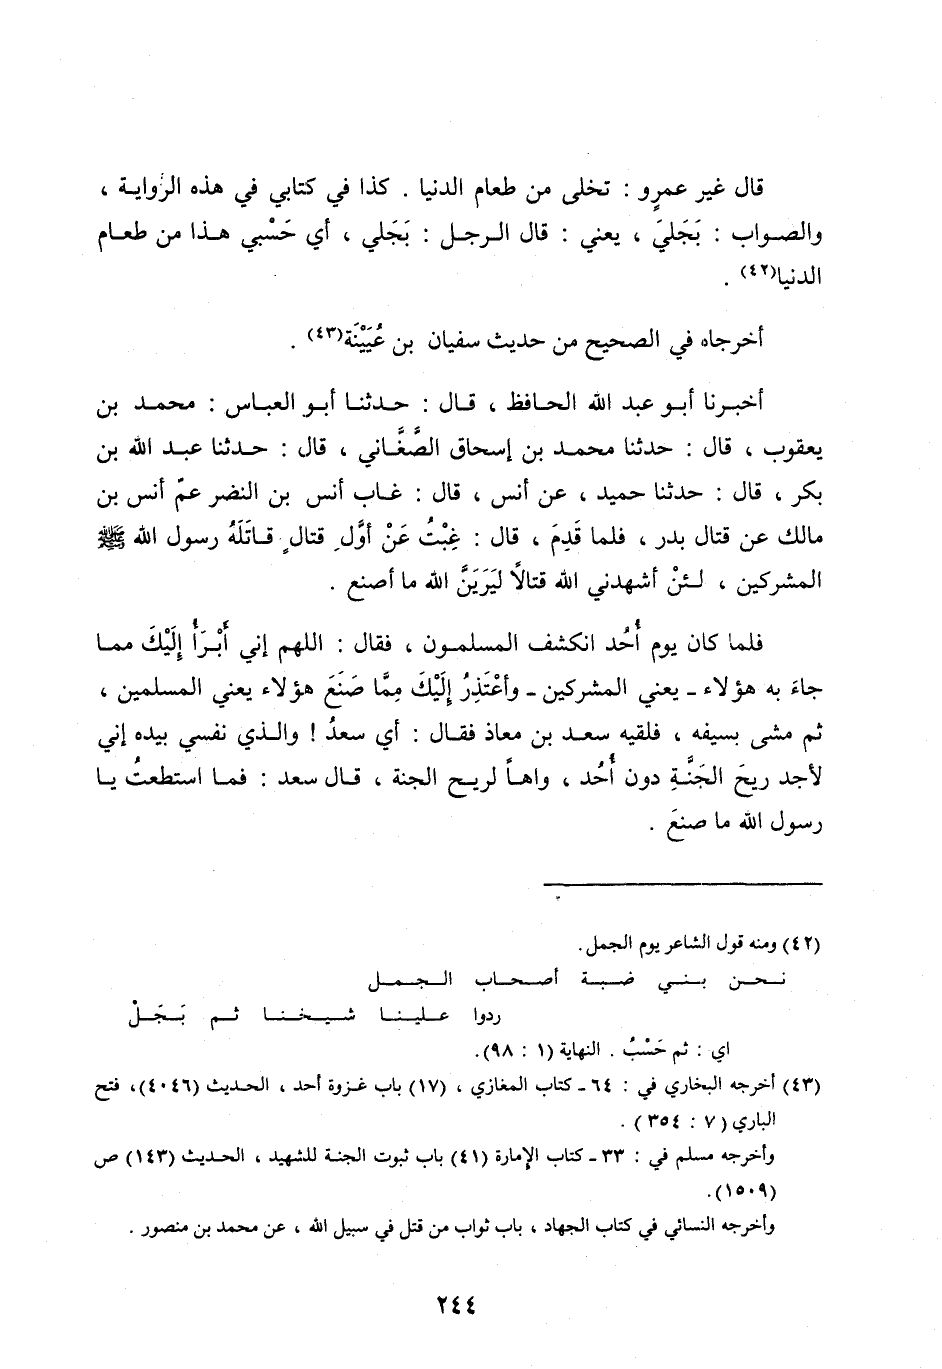 قال غير عمرٍو : تخلى من طعام الدنيا . كذا في كتابي في هذه الرواية ،
والصواب : بَجَليَ ، يعني : قال الرجل : بَجَلي ، أي حَسْبي هذا من طعام
الدنيا(٤٢) .
أخرجاه في الصحيح من حديث سفيان بن عُيَيْنَة(٤٣) .
أخبرنا أبو عبد الله الحافظ ، قال : حدثنا أبو العباس : محمد بن
يعقوب ، قال : حدثنا محمد بن إسحاق الصَّغَّاني ، قال : حدثنا عبد الله بن
بكر ، قال : حدثنا حميد ، عن أنس ، قال : غاب أنس بن النضر عمّ أنس بن
مالك عن قتال بدر ، فلما قَدِمَ ، قال : غِبْتُ عَنْ أوَّلِ قتالٍ قاتَلَهُ رسول الله ﷺ
المشركين ، لئنْ أشهدني الله قتالاً ليَرَيَنَّ الله ما أصنع .
فلما كان يوم أُحُد انكشف المسلمون ، فقال : اللهم إني أَبْرَأُ إِلَيْكَ مما
جاءَ به هؤلاء - يعني المشركين - وأعْتَذِرُ إِلَيْكَ مِمَّا صَنَعَ هؤلاء يعني المسلمين ،
ثم مشى بسيفه ، فلقيه سعد بن معاذ فقال : أي سعدُ ! والذي نفسي بيده إني
لأجد ريحَ الجَنَّةِ دون أُحُد ، واهاً لريح الجنة ، قال سعد : فما استطعتُ يا
رسول الله ما صنعَ .
(٤٢) ومنه قول الشاعر يوم الجمل .
نحن بني ضبة أصحاب الجمل
ردوا علينا شيخنا ثم بَجَلْ
اي : ثم حَسْبُ . النهاية (١ : ٩٨).
(٤٣) أخرجه البخاري في : ٦٤ - كتاب المغازي ، (١٧) باب غزوة أحد ، الحديث (٤٠٤٦)، فتح
الباري (٧ : ٣٥٤) .
وأخرجه مسلم في : ٣٣ - كتاب الإمارة (٤١) باب ثبوت الجنة للشهيد ، الحديث (١٤٣) ص
(١٥٠٩).
وأخرجه النسائي في كتاب الجهاد ، باب ثواب من قتل في سبيل الله ، عن محمد بن منصور .
٢٤٤